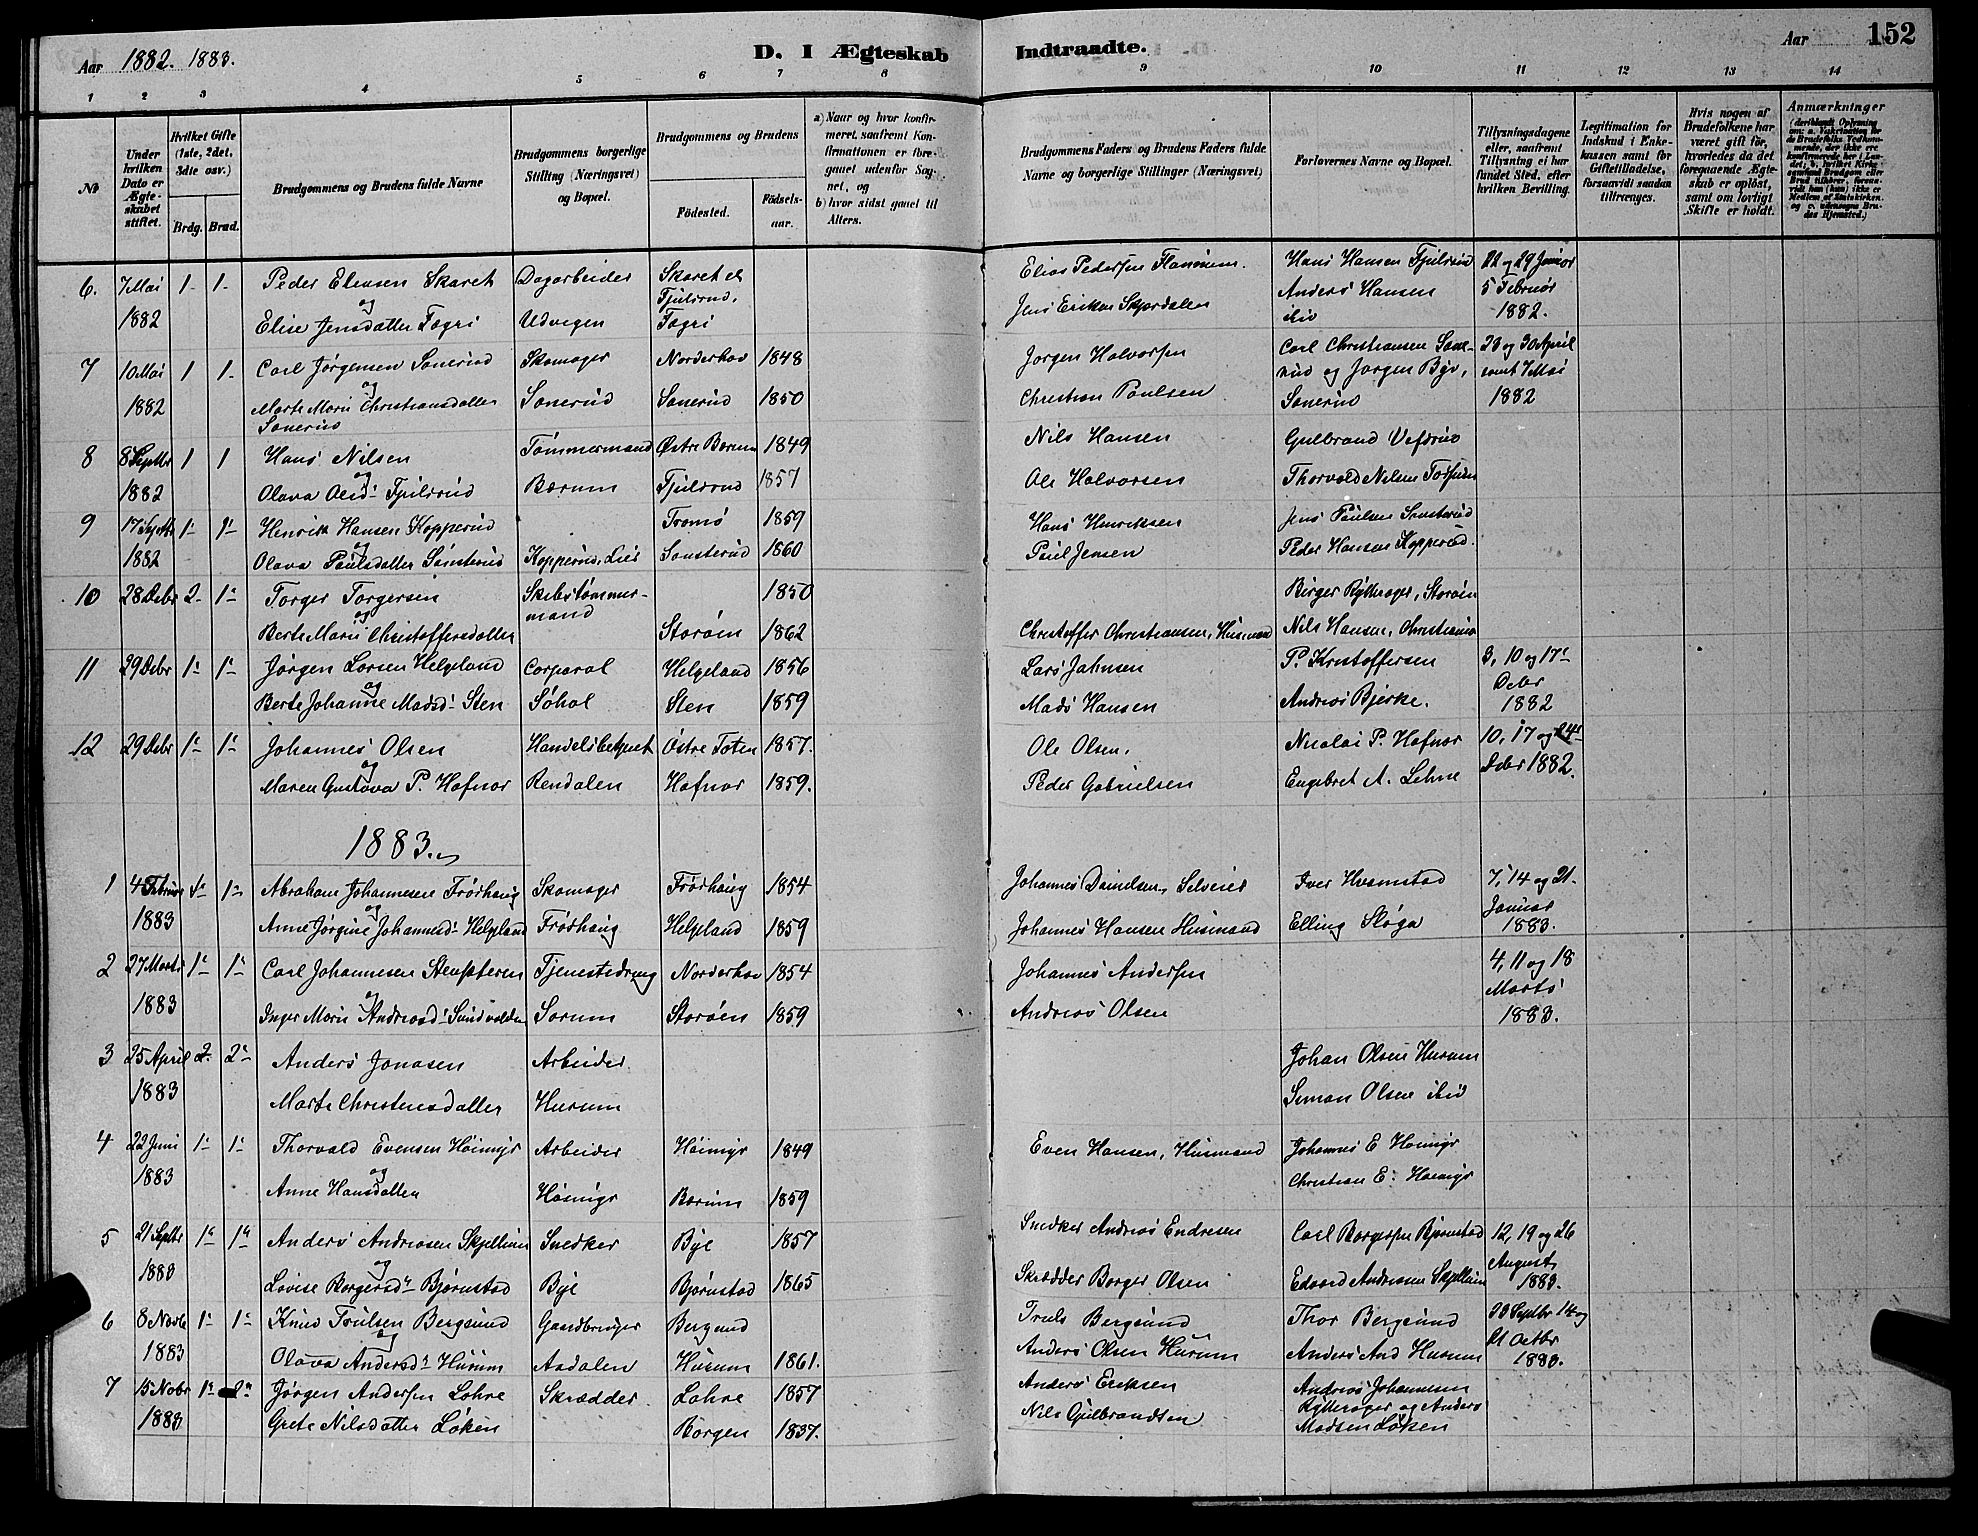 Aar 1882. 1883.
D. I Ægteskab Indtraadte.
Aar 152
1 2 3 4 5 6 7 8 9 10 11 12 13 14
No
Under hvilken Dato er Ægteskabet stiftet.
Hvilket Gifte (1ste, 2det, 3dte osv.)
Brdg. Brud.
Brudgommens og Brudens fulde Navne
Brudgommens borgerlige Stilling (Næringsvei) og Bopæl.
Brudgommens og Brudens
Fødested.
Fødselsaar.
a) Naar og hvor konfirmeret, saafremt Konfirmationen er foregaaet udenfor Sognet, og
b) hvor sidst gaaet til Alters.
Brudgommens Faders og Brudens Faders fulde Navne og borgerlige Stillinger (Næringsvei)
Forlovernes Navne og Bopæl.
Tillysningsdagene eller, saafremt Tillysning ei har fundet Sted, efter hvilken Bevilling.
Legitimation for Indskud i Enkekassen samt for Giftetilladelse, forsaavidt saadan tiltrænges.
Hvis nogen af Brudefolkene har været gift før, hvorledes da det foregaaende Ægteskab er opløst, samt om lovligt Skifte er holdt.
Anmærkninger
6. 7 Mai 1- 1- Peder Eliasen Skaret Dagarbeider Skaret el Elias Pedersen Flammen. Hans Hansen Fjulsrud 22 og 29 Januar
og Fjulsrud. Anders Hansen 5 Februar
1882 Elise Jensdatter Fagri Udvegen Fagri Jens Eriksen Skjærdalen ibid 1882.
7 10 Mai 1 1- Carl Jørgensen Sonerud Skomager Norderhov 1848 Jørgen Halvorsen Carl Christiansen Sonerud og Jørgen Bye, 23 og 30 April
og samt 7 Mai
1882 Marte Marie Christiansdatter Sonerud Sonerud 1850 Christian Paulsen Sonerud 1882
Sonerud
8 8 Septbr 1 1 Hans Nilsen Tømmermand Østre Bærum 1849 Nils Hansen Gulbrand Vefsrud
og
1882 Olava Olsd: Fjulsrud Bærum Fjulsrud 1857 Ole Halvorsen Thorvald Nilsen
9 17 Septbr 1- 1- Henrik Hansen Kopperud Tromø 1859 Hans Henriksen Jens Paulsen Sønsterud
og
1882 Olava Paulsdatter Sønsterud Kopperud, Lier Sønsterud 1860 Paul Jensen Peder Hansen Kopperud.
10 28 Debr 2- 1- Torger Torgersen Skibstømmermand 1850 Birger Rytterager, Storøen
og
Berte Marie Christoffersdatter Storøen 1862 Christoffer Christiansen, Husmand Nils Hansen, Christiania
11 29 Debr 1- 1- Jørgen Larsen Helgeland Corporal Helgeland 1856 Lars Jahnsen P. Kristoffersen 3, 10 og 17-
og Debr
Berte Johanne Madsd: Sten Søhol Sten 1859 Mads Hansen Andreas Bjerke. 1882
12 29 Debr 1- 1- Johannes Olsen Handelsbetjent Østre Toten 1857. Ole Olsen. Nicolai P. Hafnor 10, 17 og 24-
og
Maren Gustava P. Hafnor Rendalen Hafnor 1859. Peder Gabrielsen Engebret A. Lehne Debr 1882.
1883.
1 4 Februar 1- 1- Abraham Johannesen Frørhaug Skomager Frørhaug 1854 Johannes Danielsen, Selveier Iver Hvamstad 7, 14 og 21.
og Januar
1883 Anne Jørgine Johannesd: Helgeland Frørhaug Helgeland 1859 Johannes Hansen Husmand Elling Sløga 1883.
2 27 Marts 1- 1- Carl Johannesen Tjenestedreng Norderhov 1854 Johannes Andersen 4, 11 og 18
og Marts
1883 Inger Marie Andreasd: Sundvolden Sorum Storøen 1859 Andreas Olsen 1883.
3 25 April 2- 2- Anders Jonasen Arbeider Johan Olsen Hurum
1883 Marte Christensdatter Hurum Simon Olsen ibid
4 22 Juni 1- 1- Thorvald Evensen Høimyr Arbeider Høimyr 1849 Even Hansen, Husmand Johannes E Høimyr
og
1883 Anne Hansdatter Høimyr Bærum 1859 Christian E. Høimyr
5 21 Septbr 1- 1- Anders Andreasen Skjellum Snedker Bye 1857 Snedker Andreas Endresen Carl Borgersen Bjørnstad 12, 19 og 26
og August
1883 Lovise Borgersd: Bjørnstad Bye Bjørnstad 1865 Skrædder Borger Olsen Edvard Andreasen Skjellum 1883.
6 8 Novbr 1- 1- Knud Trulsen Bergsund Gaardbruger Bergsund Truls Bergsund Thor Bergsund 28 Septbr 14 og
og 21 Octbr
1883 Olava Andersd: Hurum Aadalen Hurum 1861. Anders Olsen Hurum Anders And Hurum 1883.
7 15 Nobr 1- 2- Jørgen Andersen Lohre Skrædder Lohre 1857 Anders Eriksen Andreas Johannesen
Rytterager og Anders
1883 Grete Nilsdatter Løken Borgen 1837. Nils Gulbrandsen Madsen Løken